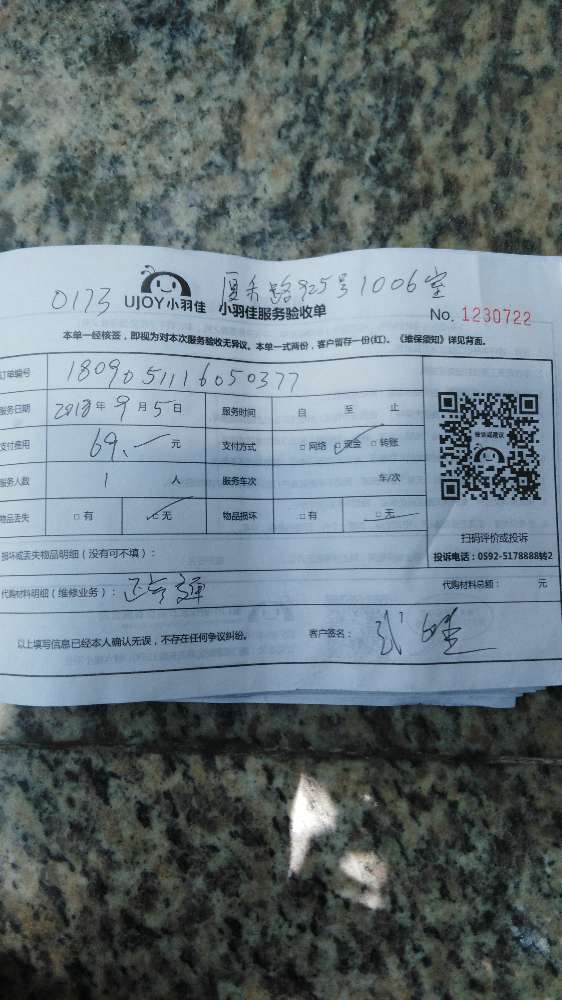 0173 UJOY小羽佳 厦禾路925号1006室
小羽佳服务验收单 No. 1230722
本单一经核签，即视为对本次服务验收无异议。本单一式两份，客户留存一份(红)。《维保须知》详见背面。
订单编号 18090511116050377
服务日期 2018年9月5日 服务时间 自 至 止
支付费用 69. 元 支付方式 □网络 □现金 □转账
服务人数 1 人 服务车次 车/次
物品丢失 □有 □无 物品损坏 □有 □无
扫码评价或投诉
损坏或丢失物品明细（没有可不填）： 投诉电话：0592-5178888转2
代购材料明细（维修业务）： 代购材料总额： 元
以上填写信息已经本人确认无误，不存在任何争议纠纷。 客户签名：